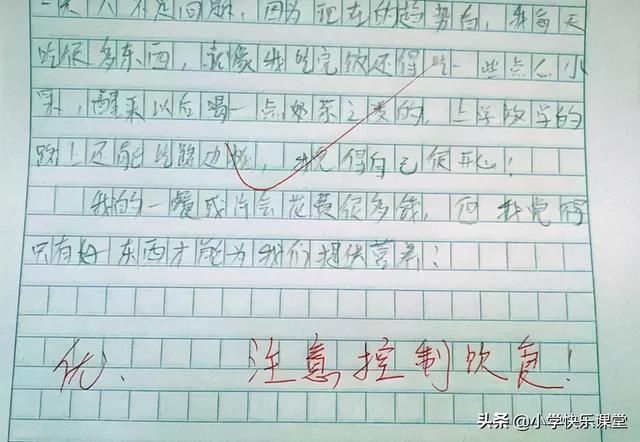 不是问题，因为现在的趋势，我每天
吃很多东西，就像我吃完饭还得吃一些点心小
果，醒来以后喝一点奶茶之类的，上学放学的
路上还能吃路边摊，我觉得自己很开心！
我的一餐或许会花费很多钱，但我觉得
只有好东西才能为我们提供营养！
优、 注意控制饮食！
头条 @小学快乐课堂